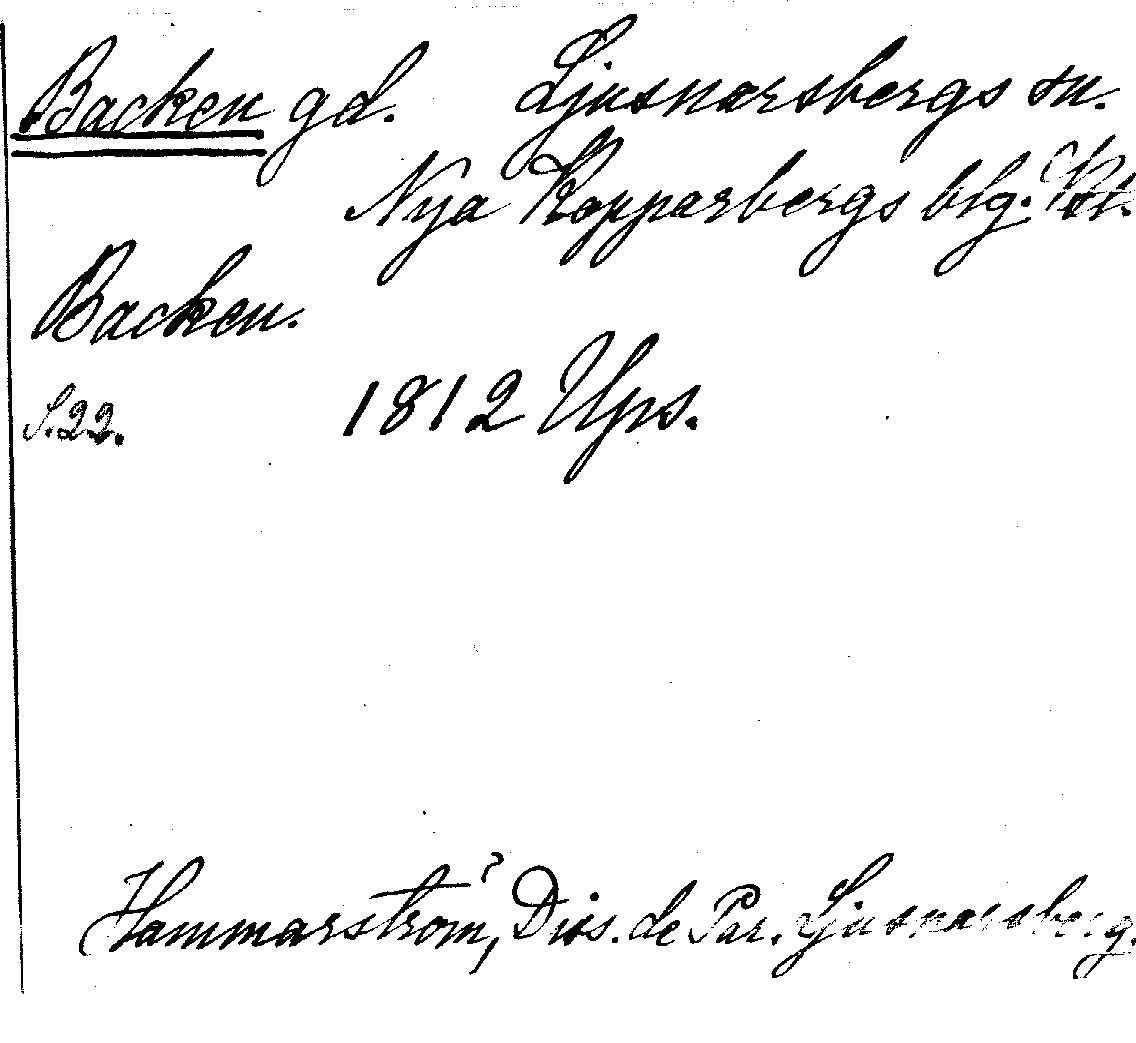 Backen gd. Ljusnarsbergs sn.
Nya Kopparbergs blg. Vstm.
Backen.
S.22. 1812 Ups.
Hammarström, Diss. de Par. Ljusnarsberg.